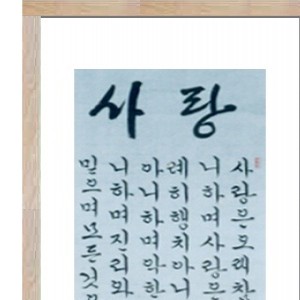 사랑
사랑은오래참
니하며사랑은
례히행치아니
아니하며악한
니하며진리와
믿으며모든것